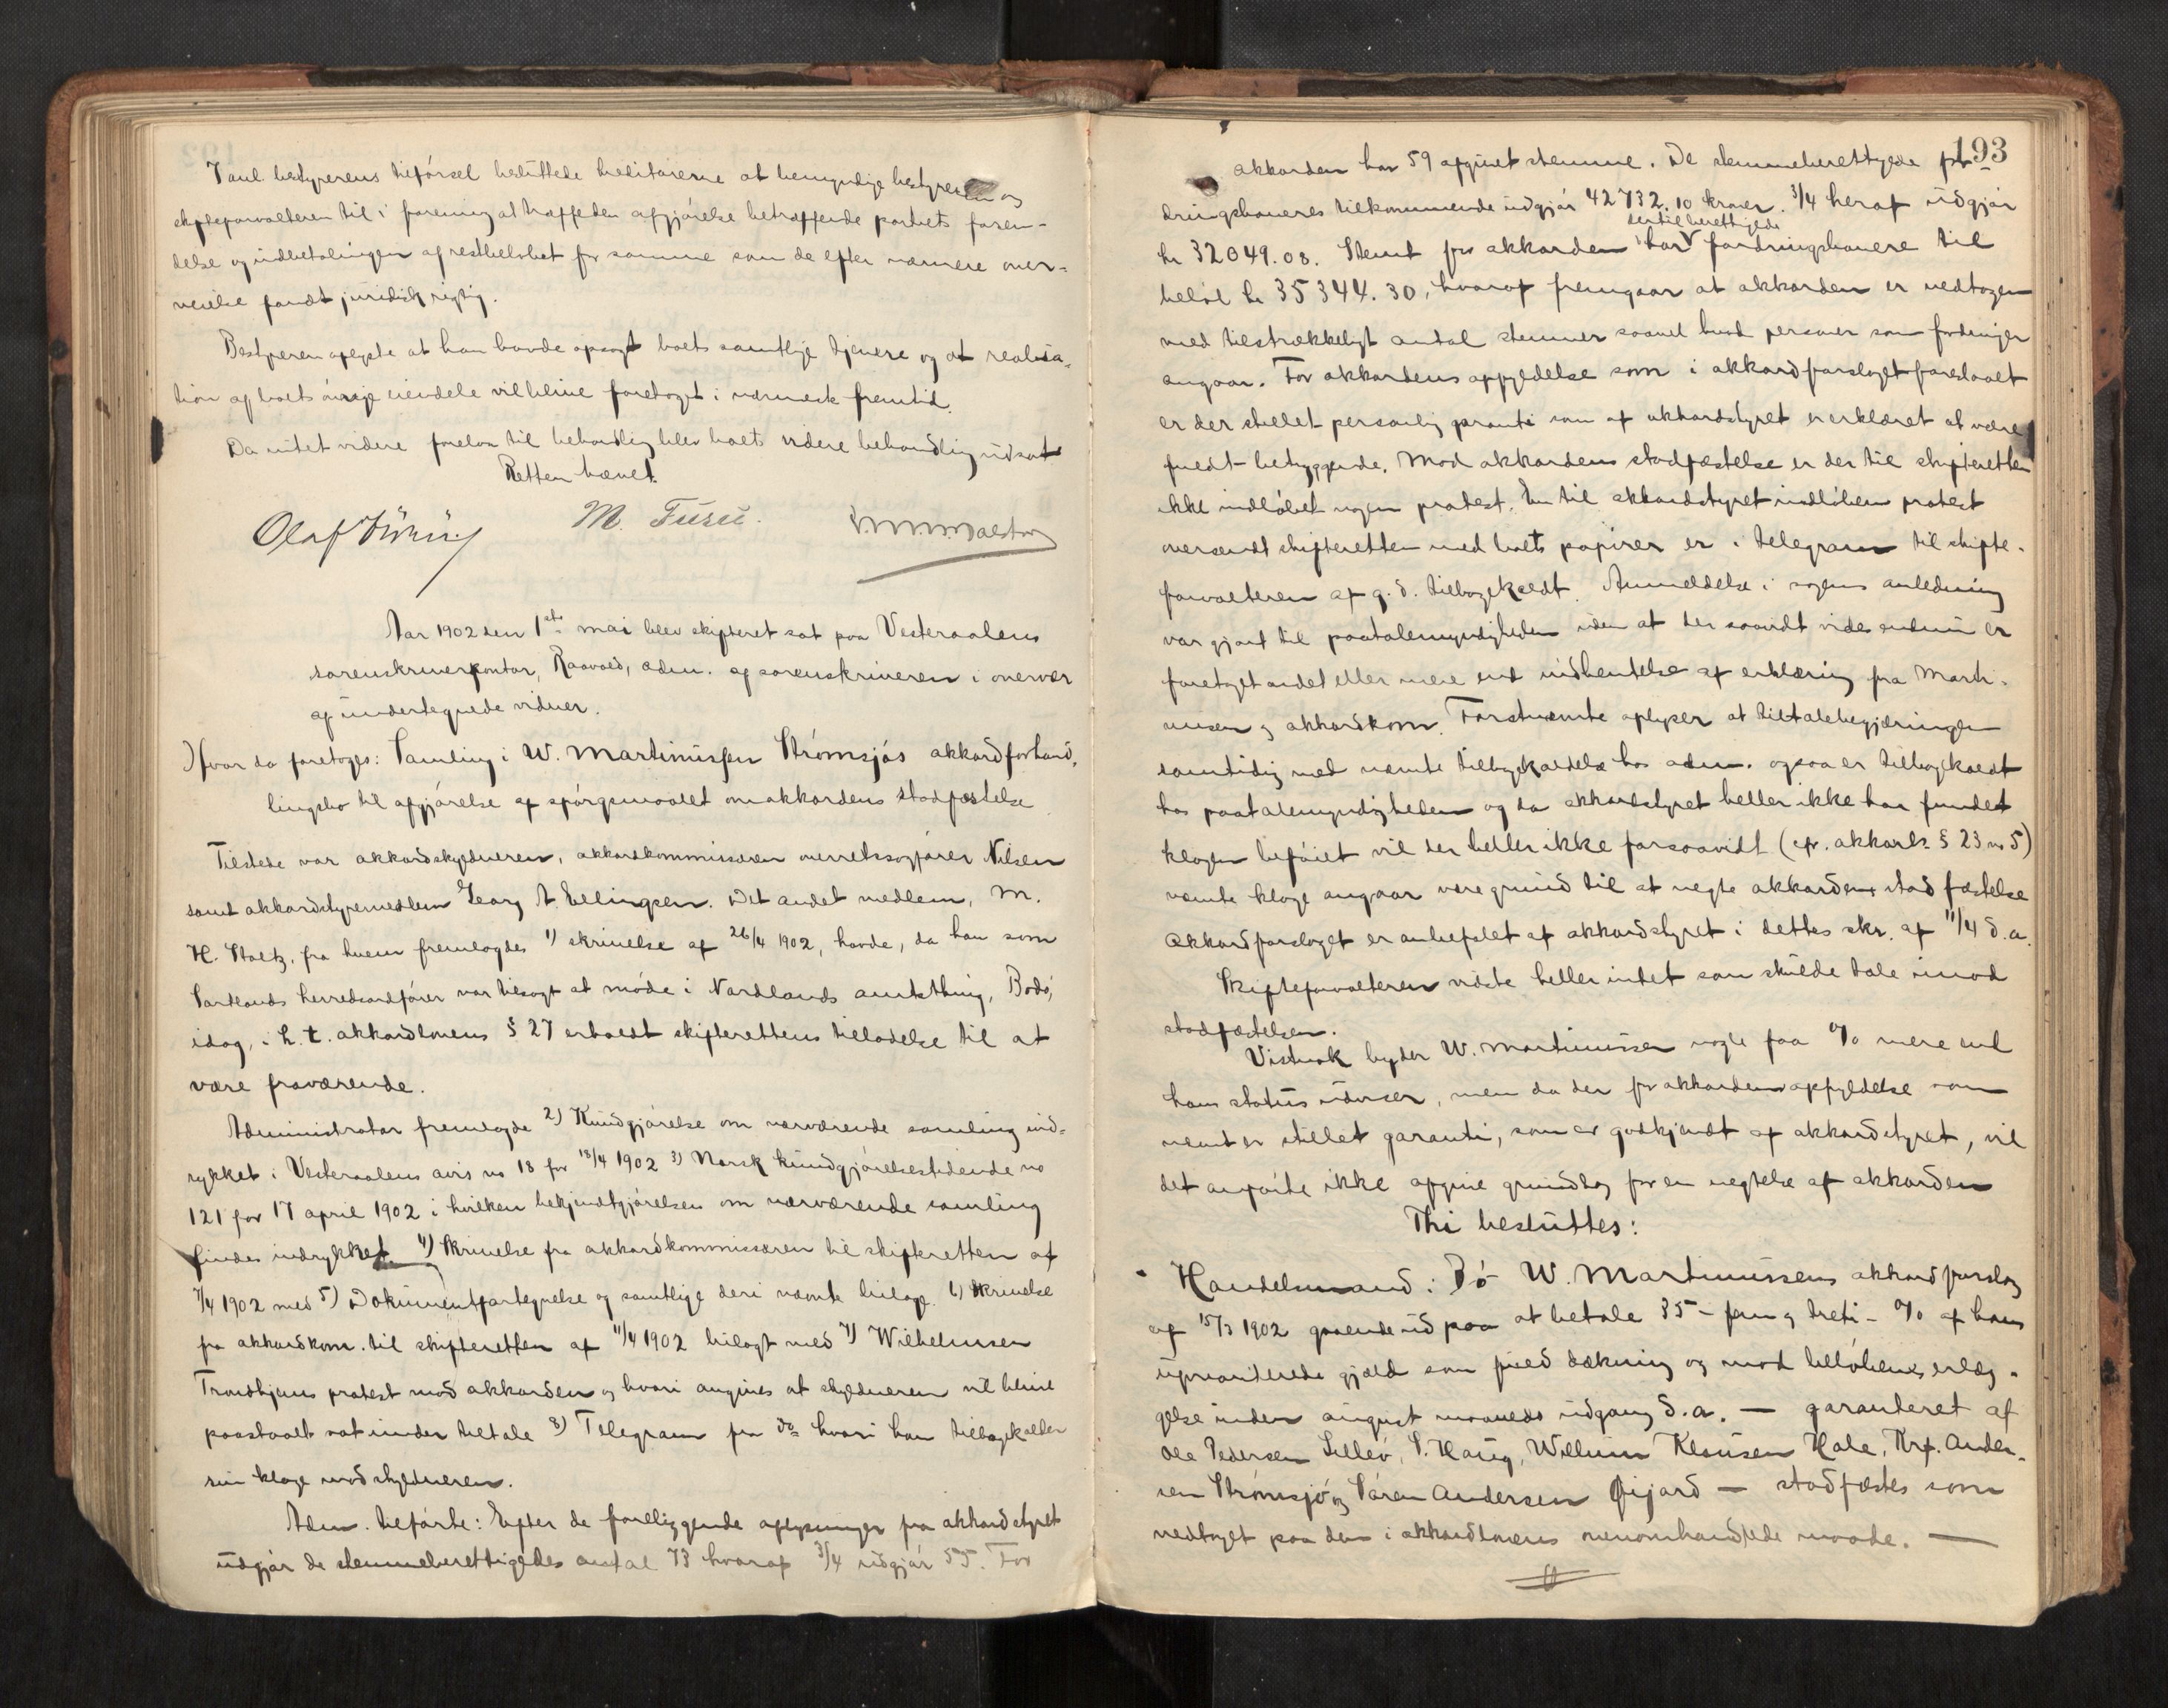 bestyrerens tilførsel besluttede kreditorerne at bemyndige bestyreren og
skifteforvalteren til i forening at træffe den afgjørelse betræffende partiets
delse og udbetalingen af restbeløbet for samme som de efter nærmere over-
veielse fandt juridisk rigtig.
Bestyreren oplyste at han havde opsagt boets samtlige tjenere og at realisa-
tion af boets øvrige eiendele vil blive foretaget i nærmeste fremtid.
Da intet videre forelaa til behandling blev boets videre behandling udsat
Retten hævet.
Olaf
M. Furu.
Aar 1902 den 1ste mai blev skifteret sat paa Vesteraalens
sorenskriverkontor, adm. af sorenskriveren i overvær
af undertegnede vidner.
Hvor da foretoges: Samling i W. Martinussen Strømsjøs akkordforhand-
lingsbo til afgjørelse af spørgsmaalet om akkordens stadfæstelse
Tilstede var akkordskyldneren, akkordkommissæren overretssagfører Nilsen
samt akkordstyremedlem Georg A. Ellingsen. Det andet medlem, M.
H. Stoltz, fra hvem fremlagdes 1) skrivelse af 26/4 1902, havde, da han som
herredsordfører var tilsagt at møde i Nordlands amtsthing, Bodø,
idag, i h. t. akkordlovens § 27 erholdt skifterettens tilladelse til at
være fraværende.
Administrator fremlagde 2) Kundgjørelse om nærværende samling ind-
rykket i Vesteraalens avis no 18 for 18/4 1902 3) Norsk kundgjørelsestidende no
121 for 17 april 1902 i hvilken bekjendtgjørelsen om nærværende samling
findes indrykket. 4) Skrivelse fra akkordkommissæren til skifteretten af
7/4 1902 med 5) Dokumentfortegnelse og samtlige deri nævnte bilage. 6) Skrivelse
fra akkordkom. til skifteretten af 11/4 1902 bilagt med 7) Wilhelmsen
Trondhjems protest mod akkorden og hvori angives at skyldneren vil blive
paastaaet sat under tiltale 8) Telegram fra do hvori han tilbagekalder
sin klage mod skyldneren.
Adm. tilførte: Efter de foreliggende oplysninger fra akkordstyret
udgjør de stemmeberettigedes antal 73 hvoraf 3/4 udgjør 55. For
193
akkorden har 59 afgivet stemme. De stemmeberettigede for-
dringshaveres tilkommende udgjør 42732.10 kroner. 3/4 heraf udgjør
kr 32049.08. Stemt for akkorden har dertil berettigede fordringshavere til
beløb kr 35344.30, hvoraf fremgaar at akkorden er vedtagen
med tilstrækkeligt antal stemmer saavel hvad personer som fordringer
angaar. For akkordens opfyldelse som i akkordforslaget foreslaaet
er der stillet personlig garanti som af akkordstyret er erklæret at være
fuldt betryggende. Mod akkordens stadfæstelse er der til skifteretten
ikke indløbet nogen protest. En til akkordstyret indløben protest
oversendt skifteretten med boets papirer er i telegram til skifte-
forvalteren af g. d. tilbagekaldt. Anmeldelse i sagens anledning
var gjort til paatalemyndigheden uden at der saavidt vides endnu er
foretaget andet eller mere end indhentelse af erklæring fra Marti-
nussen og akkordkom. Førstnævnte oplyser at tiltalebegjæringen
samtidig med nævnte tilbagekaldelse hos adm. ogsaa er tilbagekaldt
hos paatalemyndigheden og da akkordstyret heller ikke har fundet
klagen beføiet vil der heller ikke forsaavidt (cfr. akkordl. § 23 no 5)
nævnte klage angaar være grund til at negte akkorden stadfæstelse
Akkordforslaget er anbefalet af akkordstyret i dettes skr. af 11/4 d. a.
Skifteforvalteren vidste heller intet som skulde tale imod
stadfæstelsen.
Vistnok byder W. Martinussen nogle faa % mere end
hans status udviser, men da der for akkordens opfyldelse som
nævnt er stillet garanti, som er godkjendt af akkordstyret, vil
det anførte ikke afgive grundlag for en negtelse af akkorden
Thi besluttes:
Handelsmand: Bø W. Martinussens akkordforslag
af 15/3 1902 gaaende ud paa at betale 35 – fem og treti – % af hans
uprioriterede gjæld som fuld dækning og mod beløbenes erlæg-
gelse inden august maaneds udgang d. a. — garanteret af
Ole Pedersen S. Haug, Willum Klausen Hole, Krf. Ander-
sen Strømsjø og Søren Andersen — stadfæstes som
vedtaget paa den i akkordlovens omhandlede maade. —